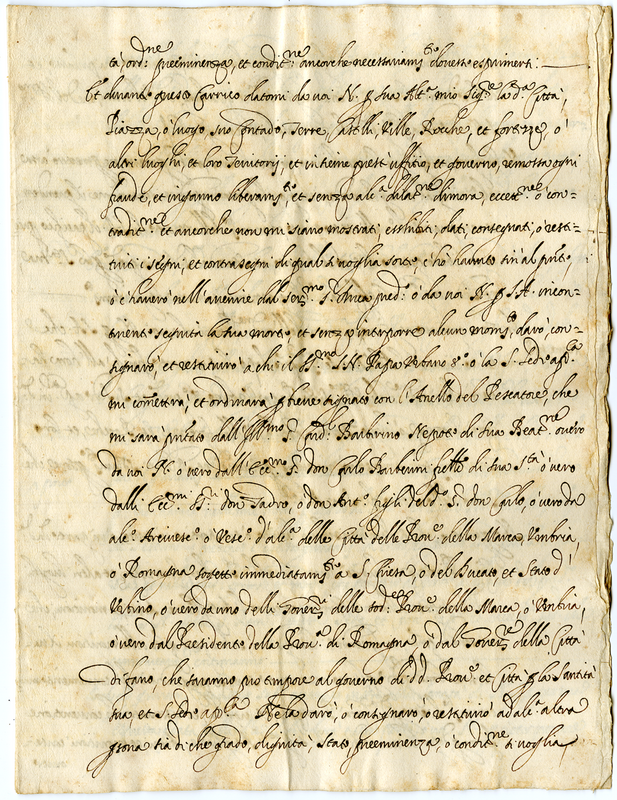 tà, ord.ne preeminenza, et condit.ne ancorche necessariam.te dovesse esprimersi:
Et durante questo Carrico datomi da voi N. p sua Alt.a mio Sig.re la d.a Città,
Piazza, ò luogo, suo Contado, Terre Castelli, Ville, Rocche, et fortezze, ò
altri luoghi, et loro Territorij, et insieme quest'uffitio, et governo, remossa ogni
fraude, et inganno liberam.te, et senza alc.a dilat.ne dimora, eccett.ne ò con-
tradit.ne et ancorche non mi siano mostrati, essibiti, dati, consegnati, ò resti-
tuiti i segni, et contrasegni di qual si voglia sorte, c'hò havuto sin'al pnte,
ò c'haverò nell'avenire dal Ser.mo S. Duca pred.o ò da voi N. p S.A. incon-
tinente seguita la sua morte, et senza interporre alcun mom.to, darò, con-
signarò, et restituirò a chi il S.mo S.N. Papa Urbano 8.o ò la S. Sede ap.ca
mi cometterà, et ordinarà p breve signato con l'Anello del Pescatore, che
mi sarà pntato dall'Ill.mo S. Card. Barberino Nepote di sua Beat.ne overo
da voi N. ò vero dall'Ecc.mo S. don Carlo Barberini frello di sua S.tà ò vero
dalli Ecc.mi SS.ri don Tadeo, ò don Ant.o figli del d.o S. don Carlo, ò vero da
alc.o Arcivesc.o ò Vesc.o d'alc.a delle Città delle Prov.e della Marca, Umbria,
ò Romagna soggette immediatam.te a S. Chiesa, ò del Ducato, et Stato d'
Urbino, ò vero da uno delli Gover.ri delle sod.e Prov.e della Marca, ò Umbria,
ò vero dal Presidente della Prov.a di Romagna, ò dal Gover.re della Città
di fano, che saranno pro tempore al governo di dd. Prov.e et Città p la Santità
sua, et S. Sede ap.ca Ne la darò, ò consignarò, ò restituirò ad alc.a altra
psona sia di che grado, dignità, stato, preeminenza, ò condit.ne si voglia,